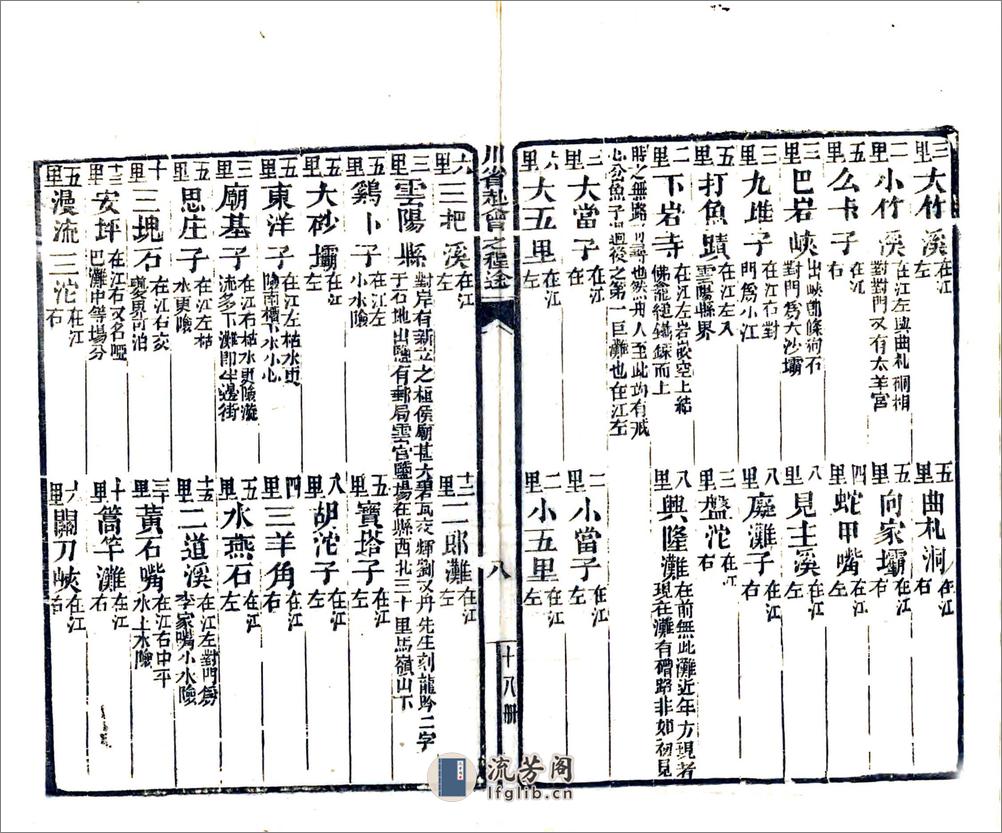 三里 大竹溪 在江左
五里 曲札洞 在江左
二里 小竹溪 在江左與曲札洞相對對門又有太羊宮
五里 向家壩 在江右
五里 么卡子 在江右
四里 蛇甲嘴 在江左
三里 巴岩峽 出峽朝條狗石對門爲大沙壩
八里 見主溪 在江左
三里 九堆子 在江右對門爲小江
八里 磨灘子 在江右
五里 打魚蹟 在江左入雲陽縣界
三里 盤沱 在江右
二里 下岩寺 在江左岩嵌空上結佛龕縋鐵鍊而上
八里 興隆灘 在前無此灘近年方現者現在灘有礌路非如初見
時之無路可尋也然舟人至此均有戒
心洵魚子迴後之第一巨灘也在江左
三里 大當子 在江右
二里 小當子 在江左
六里 大五里 在江左
二里 小五里 在江左
川省水會之程途
八
十八冊
六里 三把溪 在江左
十二里 二郎灘 在江左
三里 雲陽縣 對岸有新立之桓侯廟甚大碧瓦交輝劉又丹先生刻龍吟二字
于石地出鹽有郵局雲官鹽場在縣西北三十里馬嶺山下
五里 鷄卜子 在江左小水險
五里 寶塔子 在江右
五里 大砂壩 在江左
八里 胡沱子 在江左
五里 東洋子 在江左枯水更險南櫃下水小心
四里 三羊角 在江右
三里 廟基子 在江右枯水更險灘流多下灘卽牛邊街
五里 水燕石 在江左
五里 思庄子 在江左枯水更險
十五里 二道溪 在江左對門爲李家嘴小水險
十里 三塊石 在江右交夔界可泊
三十里 黃石嘴 在江右中平水上水險
十二里 安坪 在江右又名啞巴灘中等場分
十里 篙竿灘 在江右
五里 漫流三沱 在江右
六里 關刀峽 在江右
流芳阁
lfglib.cn